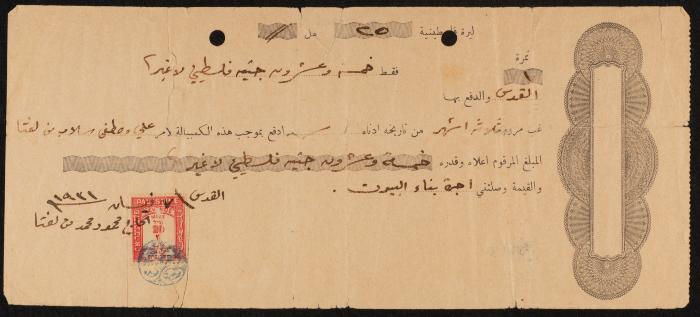 ليرة فلسطينية ٢٥ مل
نمرة
١
فقط خمسة وعشرون جنيه فلسطيني لا غير
القدس والدفع بها
غب مرور ثلاثة اشهر من تاريخه ادناه ادفع بموجب هذه الكمبيالة لأمر علي ومصطفى سلامه من لفتا
المبلغ المرقوم اعلاه وقدره خمسة وعشرون جنيه فلسطيني لا غير
والقيمة وصلتني أجرة بناء البيوت .
القدس نيسان ١٩٣١
PALESTINE
20
الحاج محمود محمد من لفتا